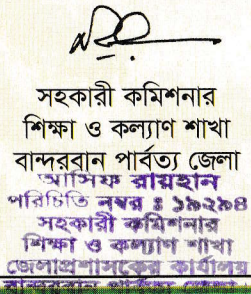 সহকারী কমিশনার
শিক্ষা ও কল্যাণ শাখা
বান্দরবান পার্বত্য জেলা
আসিফ রায়হান
পরিচিতি নম্বর ঃ ১৯২৯৪
সহকারী কমিশনার
শিক্ষা ও কল্যাণ শাখা
জেলাপ্রশাসকের কার্যালয়
বান্দরবান পার্বত্য জেলা